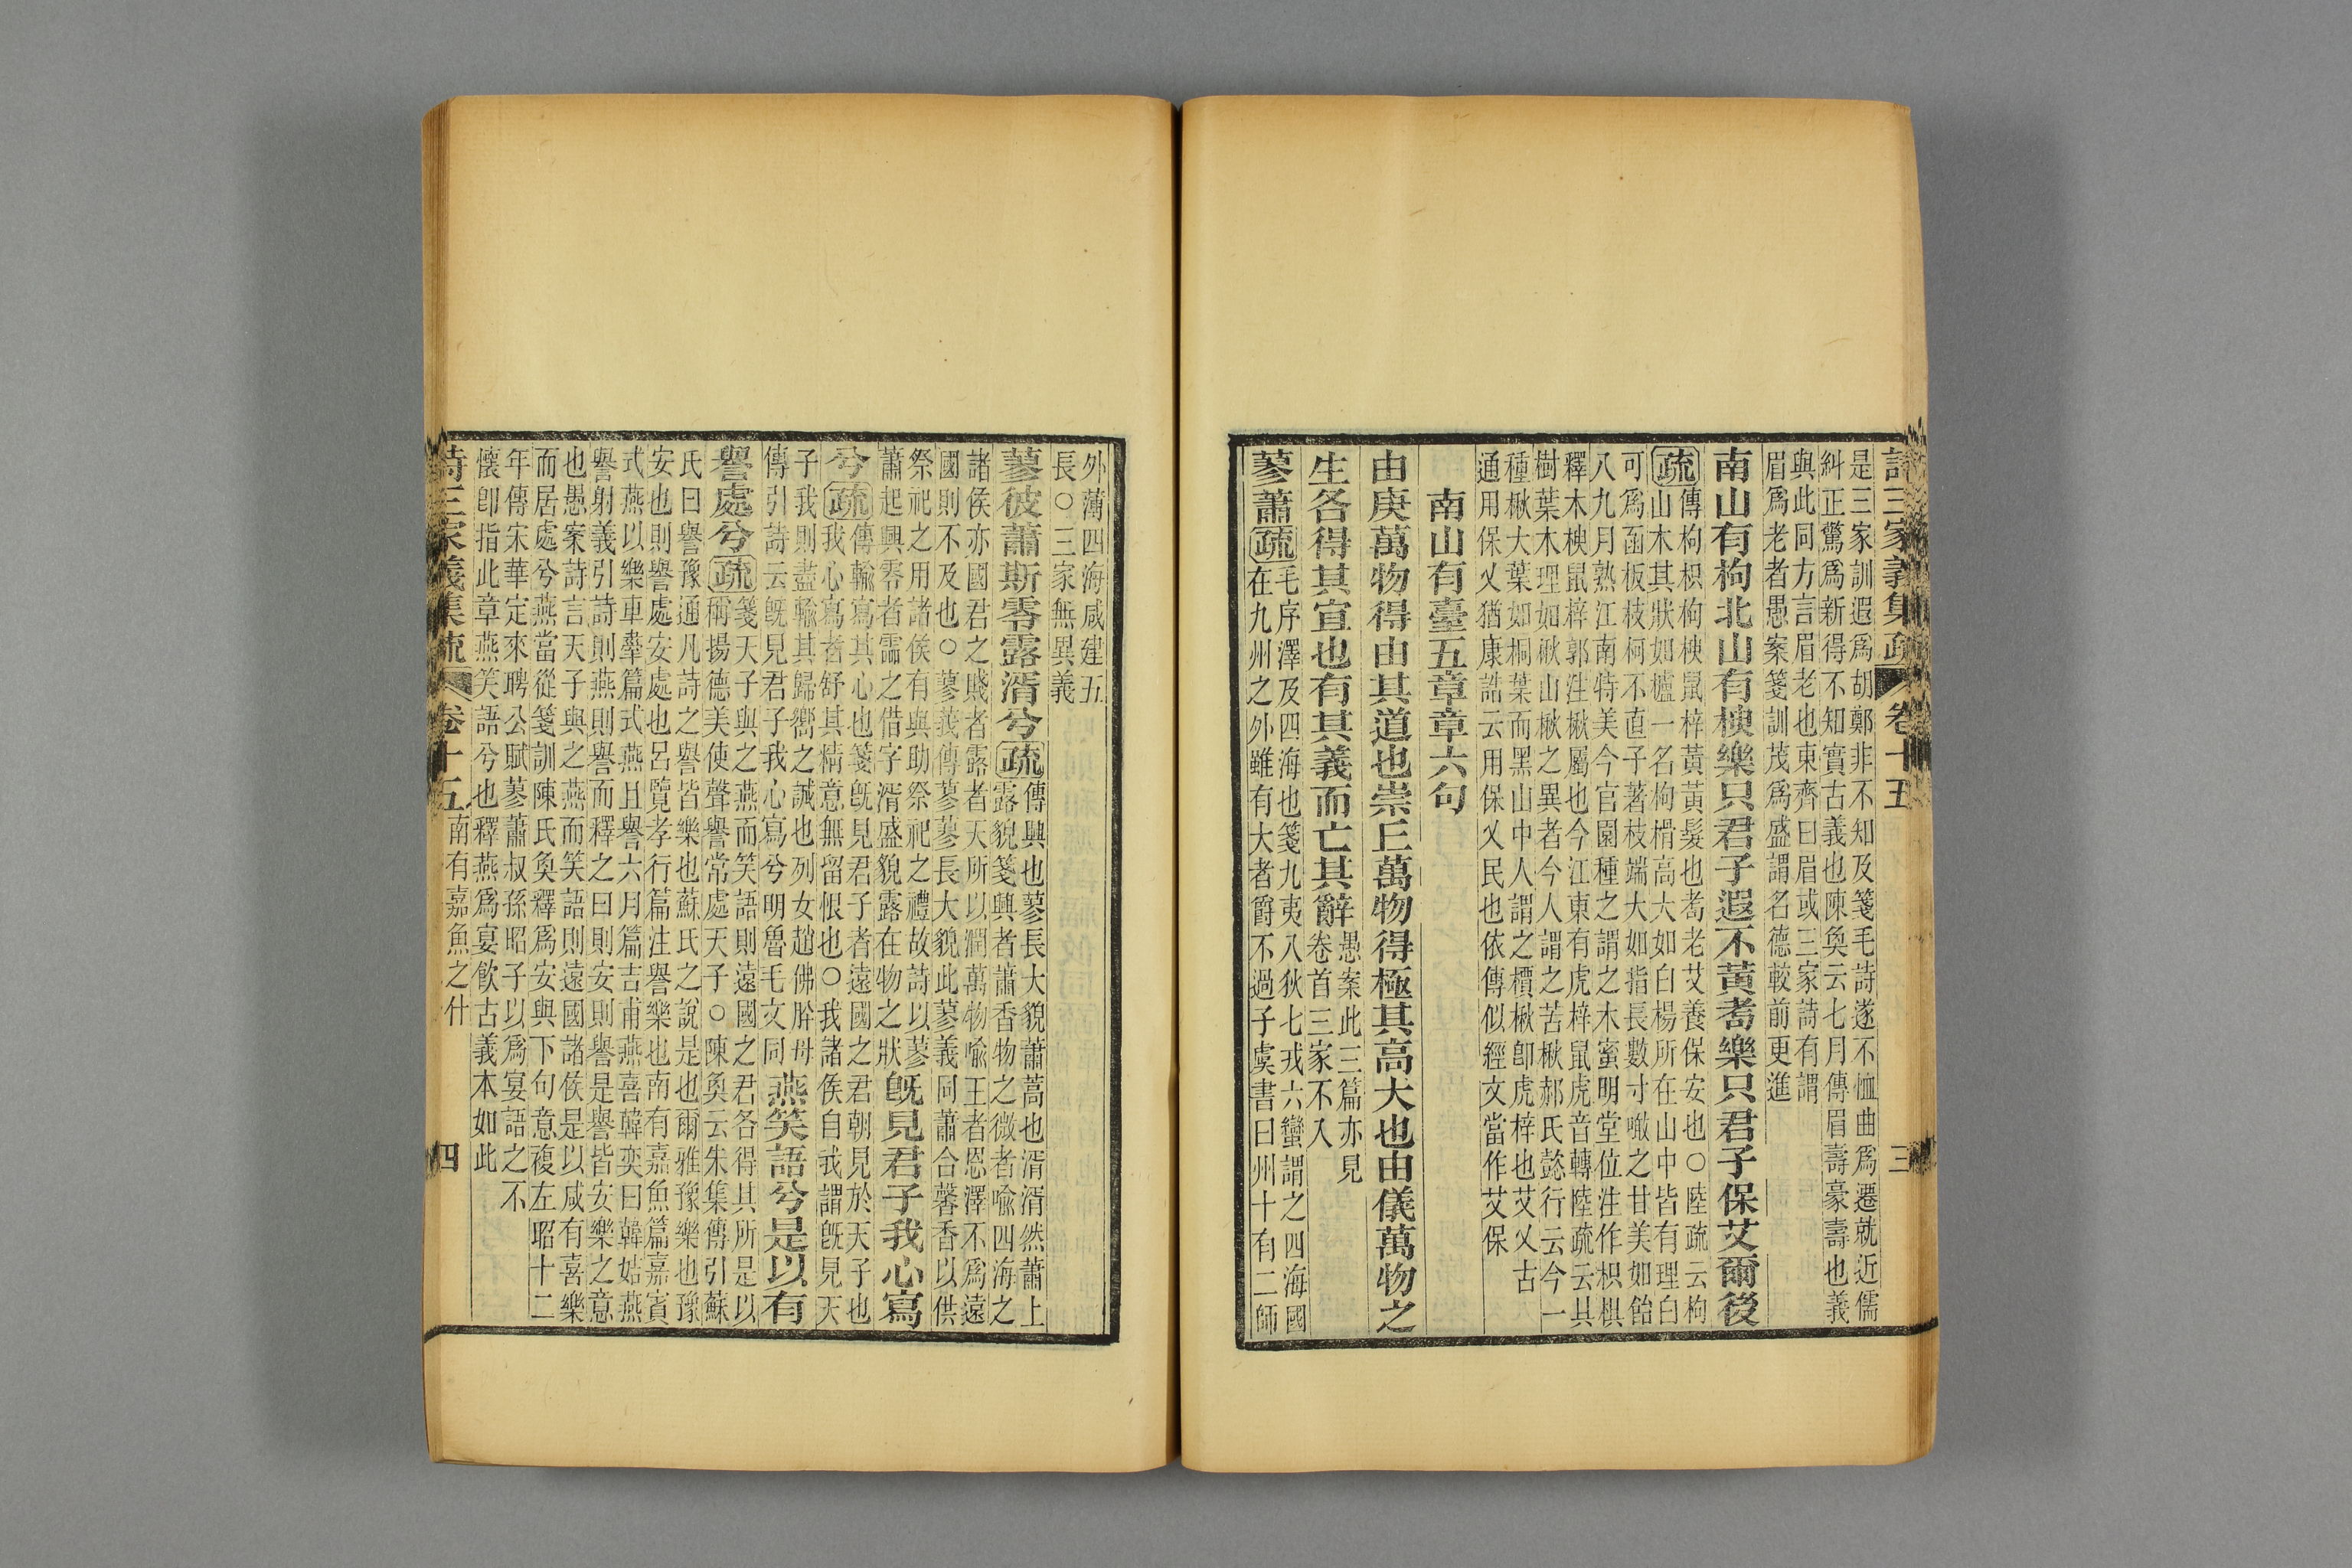 詩三家義集疏 卷十五 三
是三家訓遐爲胡鄭非不知及箋毛詩遂不恤曲爲遷就近儒
糾正驚爲新得不知實古義也陳奐云七月傳眉壽豪壽也義
與此同方言眉老也東齊曰眉或三家詩有謂
眉爲老者愚案箋訓茂爲盛謂名德較前更進
南山有枸北山有楰樂只君子遐不黃耇樂只君子保艾爾後
疏傳枸枳枸楰鼠梓黃黃髮也耇老艾養保安也○陸疏云枸
山木其狀如櫨一名枸㮋高大如白楊所在山中皆有理白
可爲函板枝柯不直子著枝端大如指長數寸噉之甘美如飴
八九月熟江南特美今官園種之謂之木蜜明堂位注作枳椇
釋木楰鼠梓郭注楸屬也今江東有虎梓鼠虎音轉陸疏云其
樹葉木理如楸山楸之異者今人謂之苦楸郝氏懿行云今一
種楸大葉如桐葉而黑山中人謂之檟楸卽虎梓也艾乂古
通用保乂猶康誥云用保乂民也依傳似經文當作艾保
南山有臺五章章六句
由庚萬物得由其道也崇丘萬物得極其高大也由儀萬物之
生各得其宜也有其義而亡其辭愚案此三篇亦見
卷首三家不入
蓼蕭疏毛序澤及四海也箋九夷八狄七戎六蠻謂之四海國
在九州之外雖有大者爵不過子虞書曰州十有二師
外薄四海咸建五
長○三家無異義
蓼彼蕭斯零露湑兮疏傳興也蓼長大貌蕭蒿也湑湑然蕭上
露貌箋興者蕭香物之微者喻四海之
諸侯亦國君之賤者露者天所以潤萬物喻王者恩澤不爲遠
國則不及也○蓼莪傳蓼蓼長大貌此蓼義同蕭合馨香以供
祭祀之用諸侯有與助祭祀之禮故詩以蓼
蕭起興零者霝之借字湑盛貌露在物之狀旣見君子我心寫
兮疏傳輸寫其心也箋旣見君子者遠國之君朝見於天子也
我心寫者舒其情意無留恨也○我諸侯自我謂旣見天
子我則盡輸其歸嚮之誠也列女趙佛肸母
傳引詩云旣見君子我心寫兮明魯毛文同燕笑語兮是以有
譽處兮疏箋天子與之燕而笑語則遠國之君各得其所是以
稱揚德美使聲譽常處天子○陳奐云朱集傳引蘇
氏曰譽豫通凡詩之譽皆樂也蘇氏之說是也爾雅豫樂也豫
安也則譽處安處也呂覽孝行篇注譽樂也南有嘉魚篇嘉賓
式燕以樂車舝篇式燕且譽六月篇吉甫燕喜韓奕曰韓姞燕
譽射義引詩則燕則譽而釋之曰則安則譽是譽皆安樂之意
也愚案詩言天子與之燕而笑語則遠國諸侯是以咸有喜樂
而居處兮燕當從箋訓陳氏奐釋爲安與下句意複左昭十二
年傳宋華定來聘公賦蓼蕭叔孫昭子以爲宴語之不
懷卽指此章燕笑語兮也釋燕爲宴飮古義本如此
詩三家義集疏 卷十五 南有嘉魚之什 四